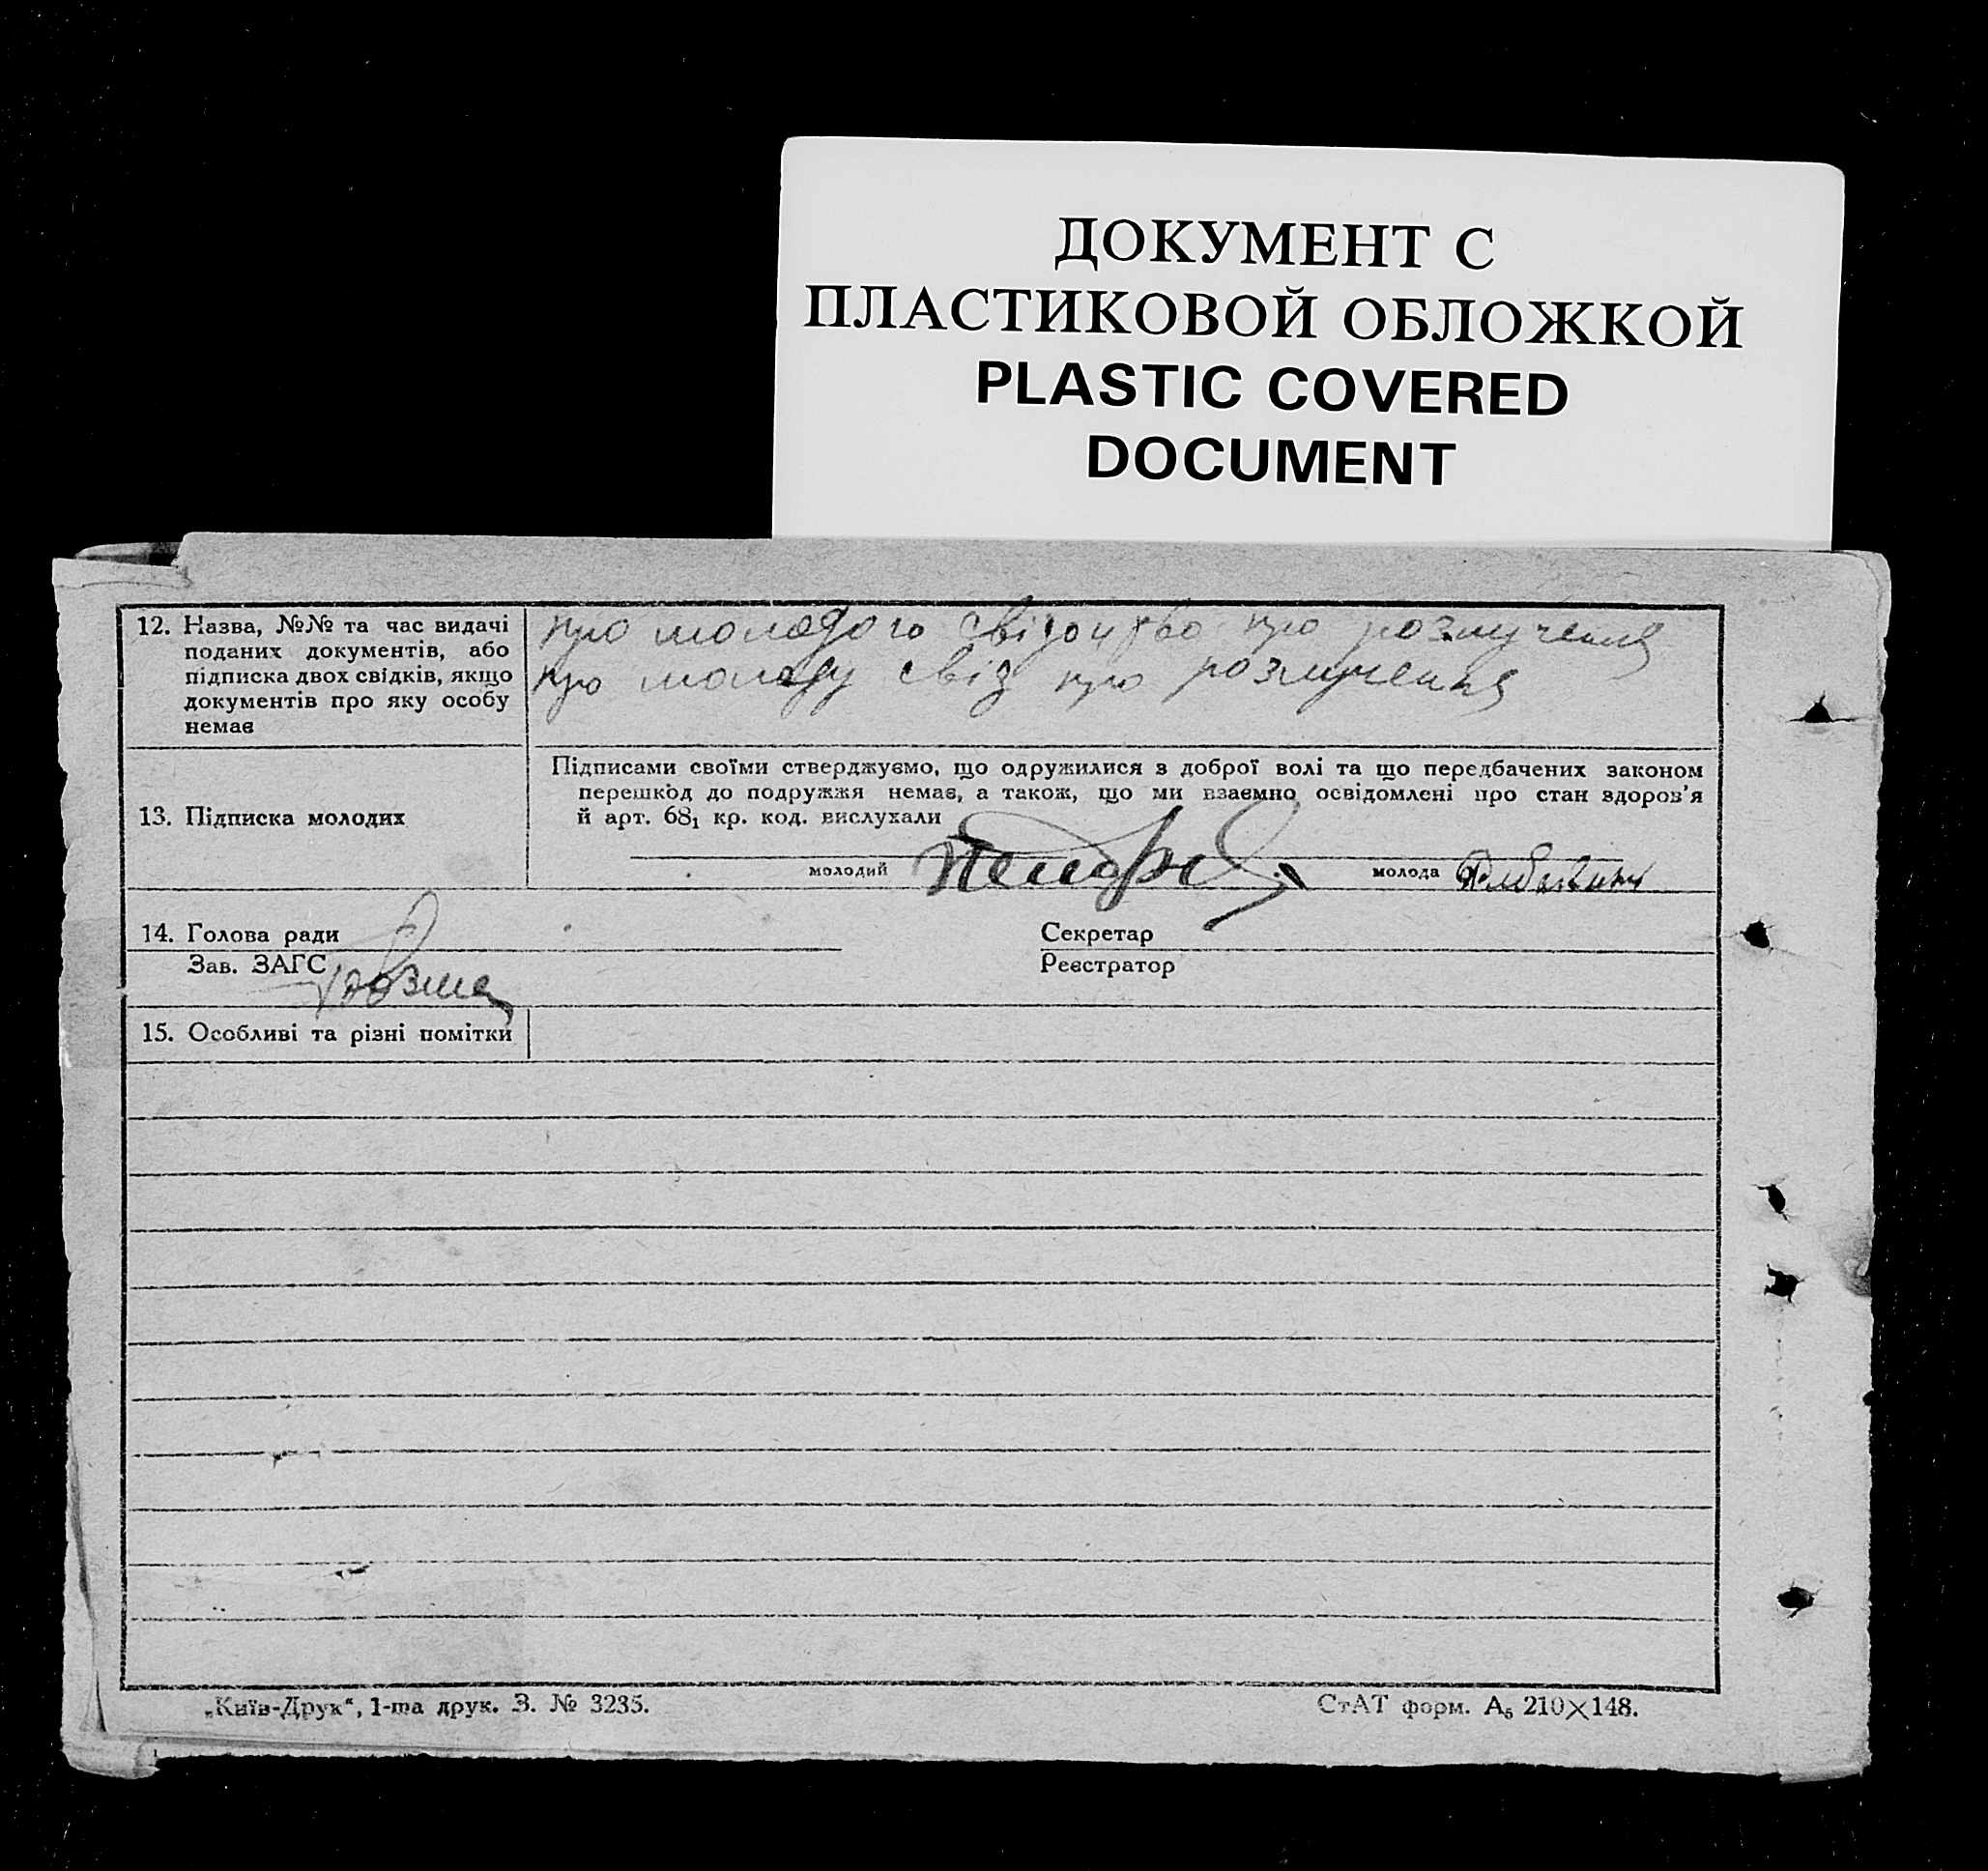 ДОКУМЕНТ С
ПЛАСТИКОВОЙ ОБЛОЖКОЙ
PLASTIC COVERED
DOCUMENT
12. Назва, №№ та час видачі
поданих документів, або
підписка двох свідків, якщо
документів про яку особу
немає
про молодого свідоцтво про розлучення
про молоду свід про розлучення
13. Підписка молодих
Підписами своїми стверджуємо, що одружилися з доброї волі та що передбачених законом
перешкод до подружжя немає, а також, що ми взаємно освідомлені про стан здоров'я
й арт. 68₁ кр. код. вислухали
молодий
молода
14. Голова ради
Секретар
Зав. ЗАГС
Реєстратор
15. Особливі та різні помітки
„Київ-Друк“, 1-ша друк. З. № 3235.
СтАТ форм. А₅ 210×148.